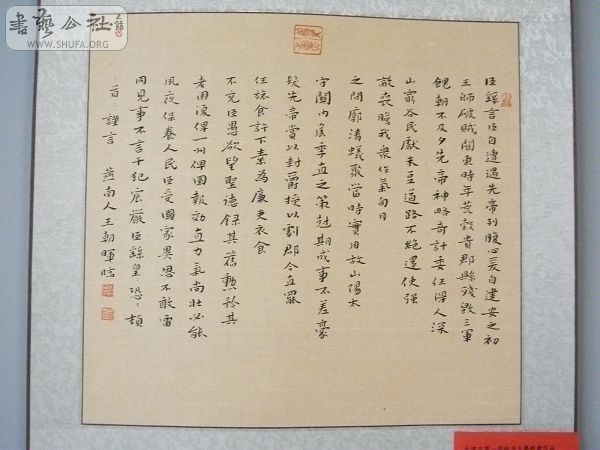 書藝公社
WWW.SHUFA.ORG
臣繇言臣自遭遇先帝列腹心爰自建安之初
王師破賊關東時年荒穀貴郡縣殘毀三軍
餽朝不及夕先帝神略奇計委任得人深
山窮谷民獻米豆道路不絕遂使強
敵喪膽我衆作氣旬月
之間廓清蟻聚當時實用故山陽太
守關內侯季直之策尅期成事不差豪
髮先帝賞以封爵授以劇郡今直罷
任旅食許下素為廉吏衣食
不充臣愚欲望聖德錄其舊勳矜其
老困復俾一州俾圖報効直力氣尚壯必能
夙夜保養人民臣受國家異恩不敢雷
同見事不言干犯宸嚴臣繇皇恐〻頓
首〻謹言 燕南人王朝暉